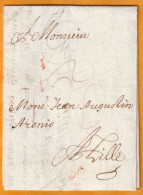 A Monsieur
Mons. Jean Augustin
Aronio
A Lille